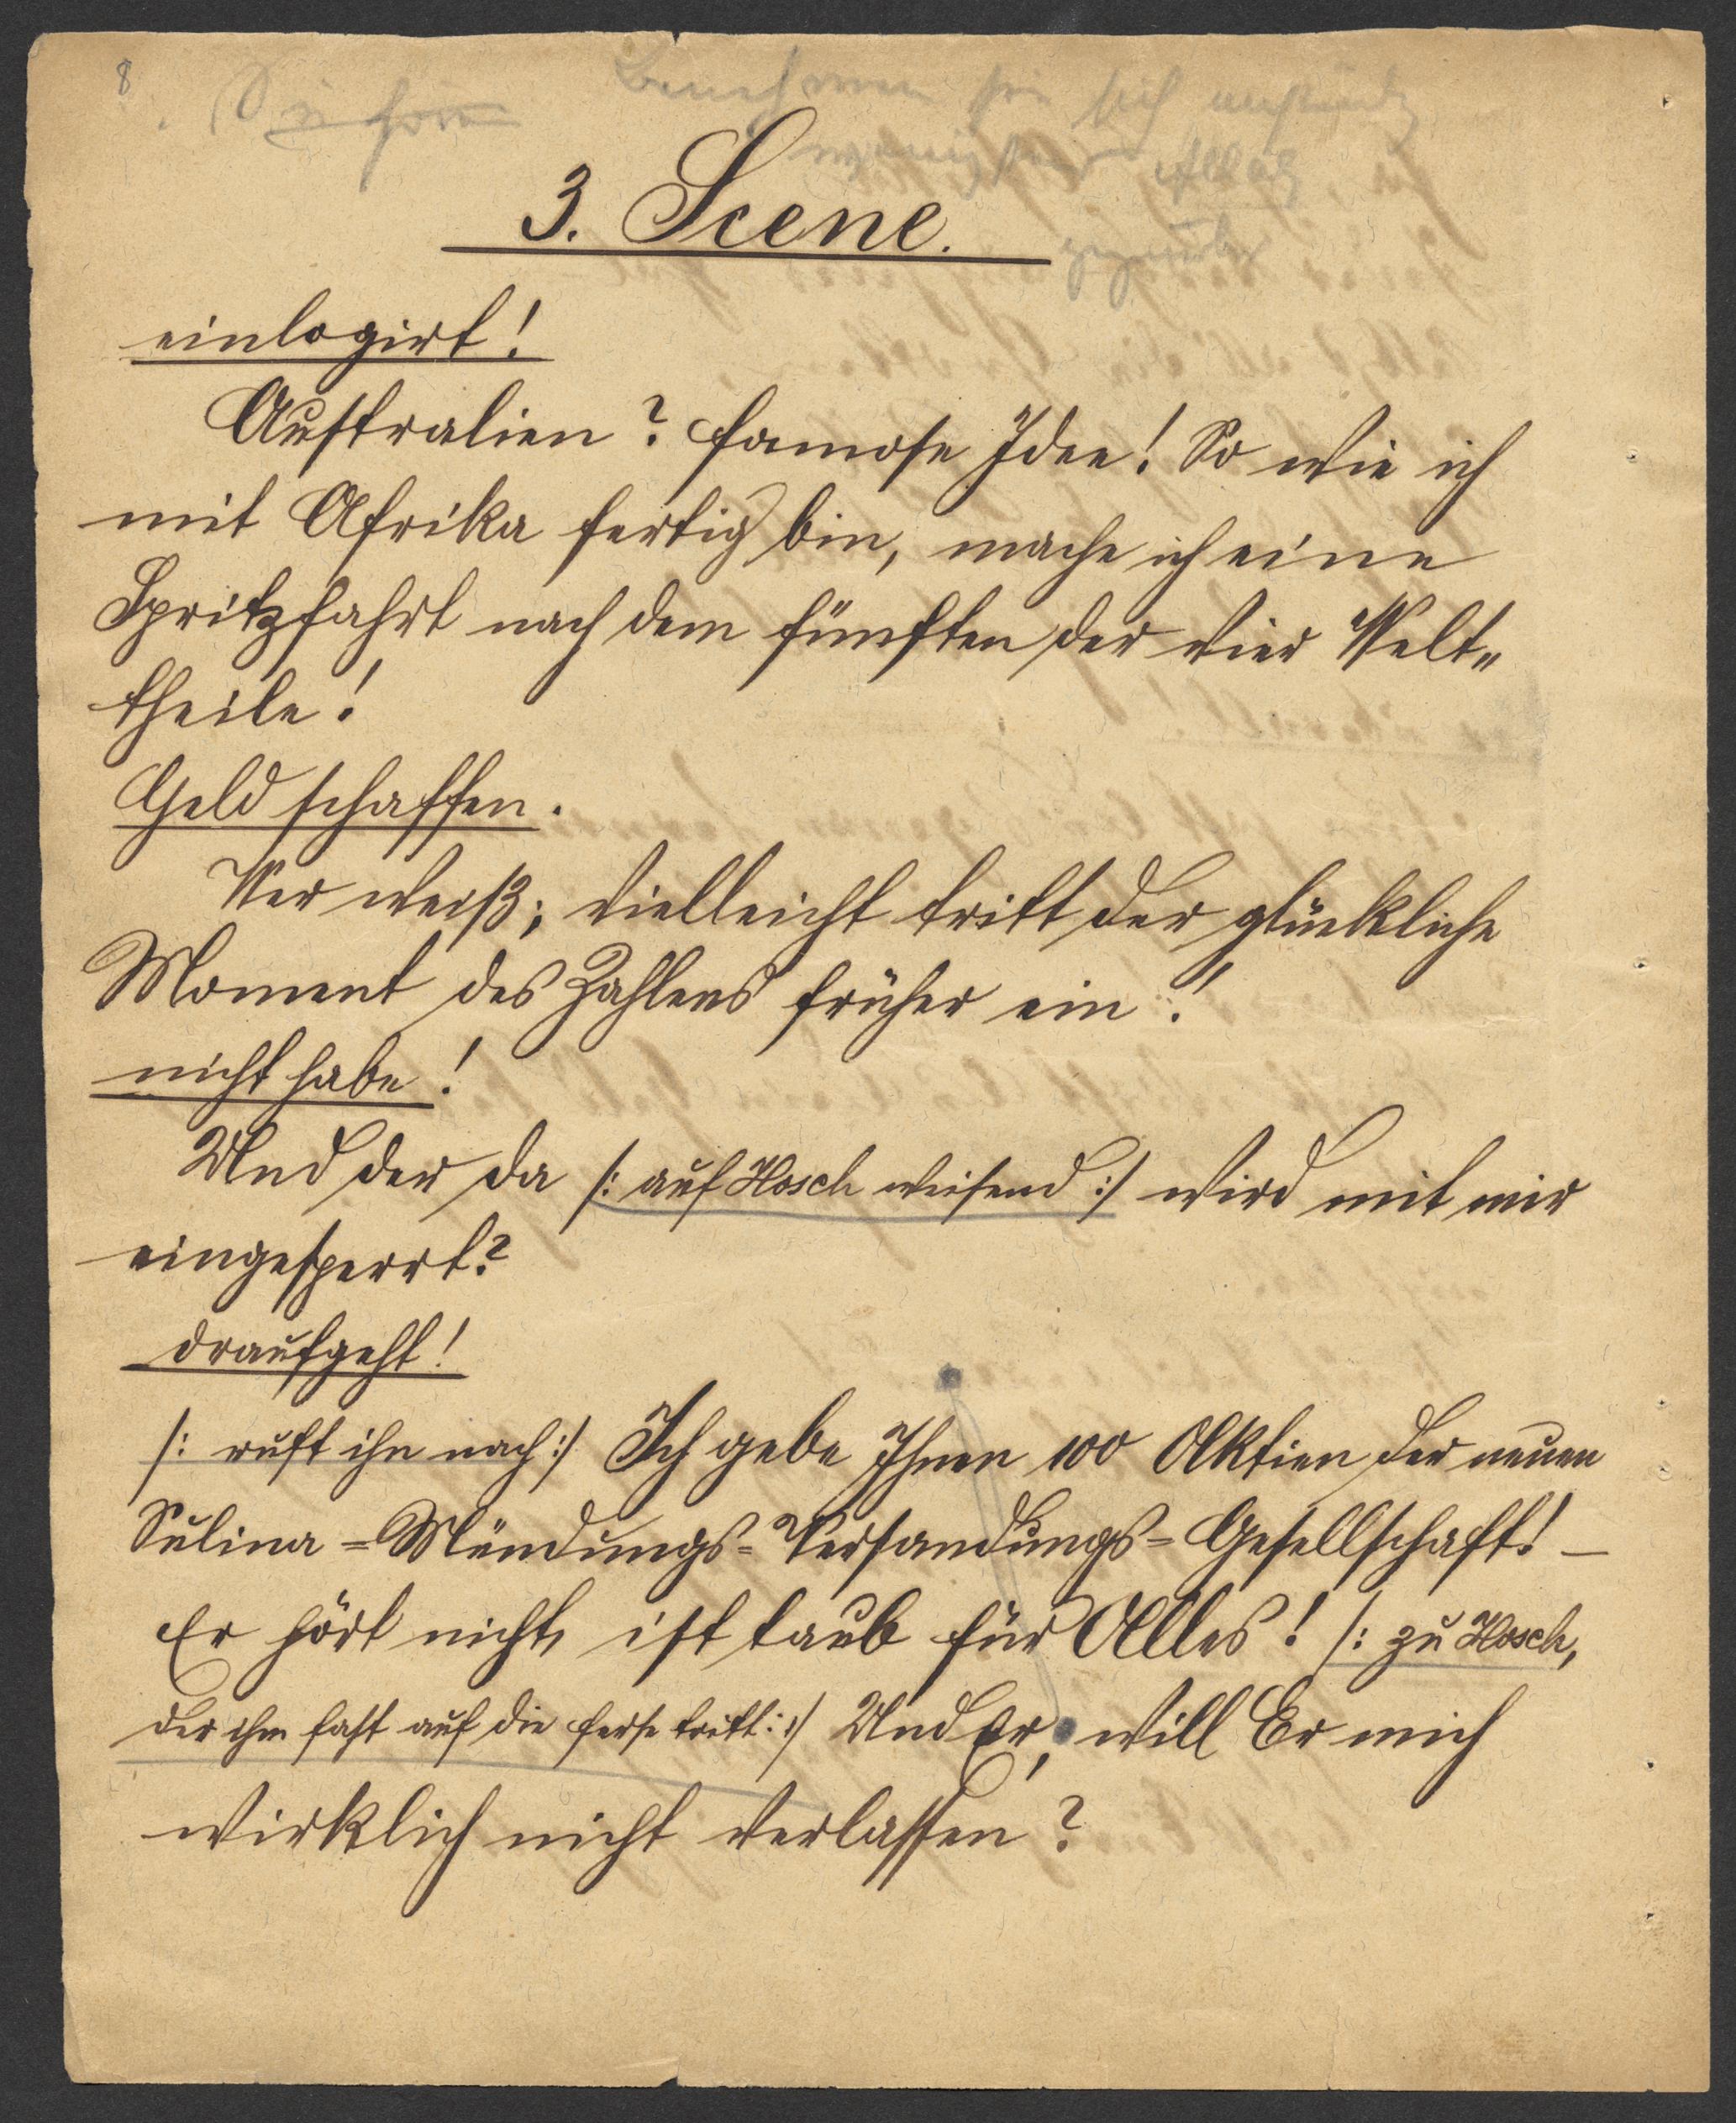 8
Benehmen Sie sich anständig
wenigstens
gegenüber
3. Scene.
einlogirt!
Australien? famose Idee! So wie ich
mit Afrika fertig bin, mache ich eine
Spritzfahrt nach dem fünften der vier Welt„
theile!
Geld schaffen.
Wer weiß; vielleicht tritt der glückliche
Moment des Zahlens früher ein!
nicht habe!
Und der da /: auf Hosch weisend :/ wird mit mir
eingesperrt?
draufgeht!
/: ruft ihn nach :/ Ich gebe Ihnen 100 Aktien der neuen
Sulina=Mündungs=Versandungs=Gesellschaft! –
Er hört nicht, ist taub für Alles! /: zu Hosch,
der ihm fast auf die Ferse tritt :/ Und Er, will Er mich
wirklich nicht verlassen?